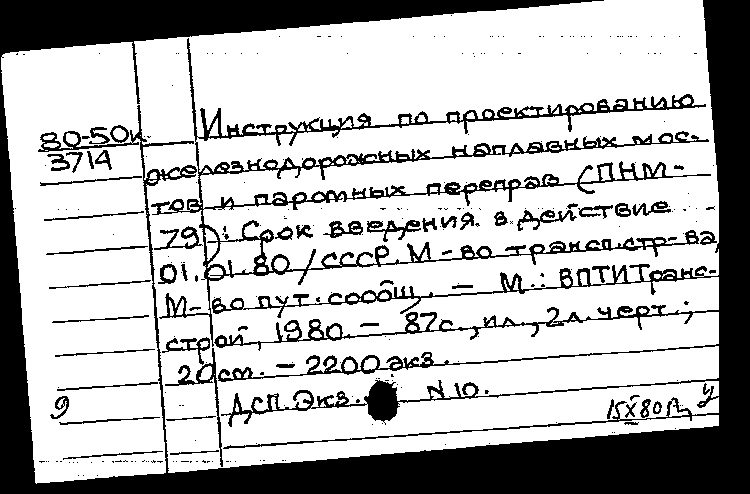 80-50к
3714
Инструкция по проектированию
железнодорожных наплавных мос-
тов и паромных переправ (ПНМ-
79): Срок введения в действие
01.01.80 / СССР. М-во трансп. стр-ва,
М-во пут. сообщ. — М.: ВПТИТранс-
строй, 1980. — 87с., ил., 2л. черт.;
20 см. — 2200 экз.
Дсп. Экз. N 10.
9
15X80